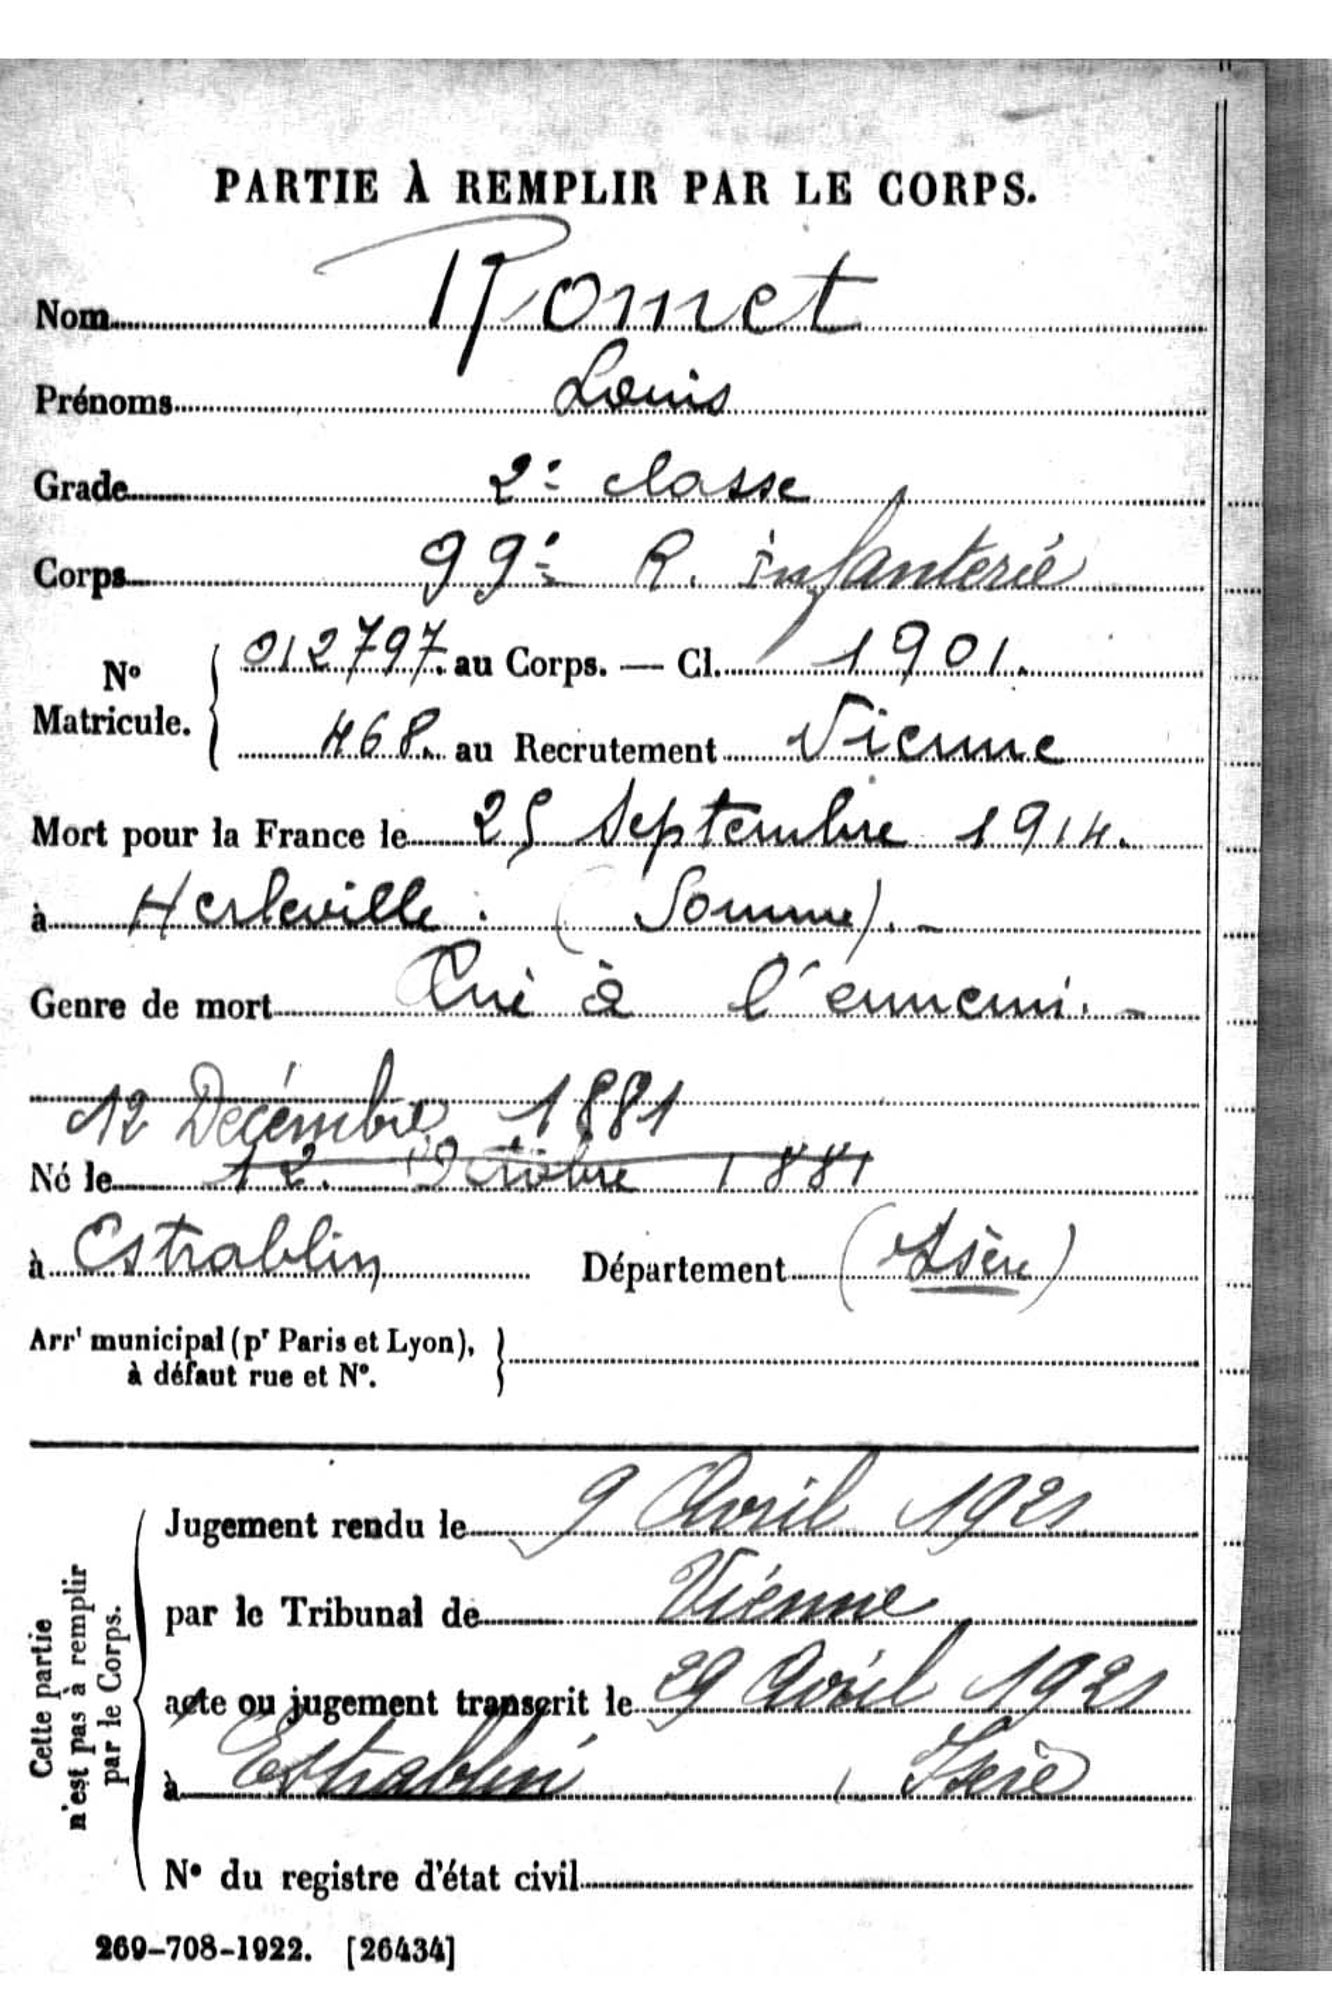 PARTIE À REMPLIR PAR LE CORPS.
Nom Romet
Prénoms Louis
Grade 2e classe
Corps 99e R. infanterie
No Matricule. { 012797. au Corps. — Cl. 1901.
468. au Recrutement Vienne
Mort pour la France le 25 Septembre 1914.
à Herleville. (Somme). -
Genre de mort Tué à l'ennemi. -
12 Décembre 1881
Né le 12 Octobre 1881
à Estrablin Département (Isère)
Arrt municipal (pr Paris et Lyon), à défaut rue et No. }
Cette partie n'est pas à remplir par le Corps.
Jugement rendu le 9 Avril 1921
par le Tribunal de Vienne
acte ou jugement transcrit le 29 Avril 1921
à Estrablin, Isère
No du registre d'état civil
269-708-1922. [26434]